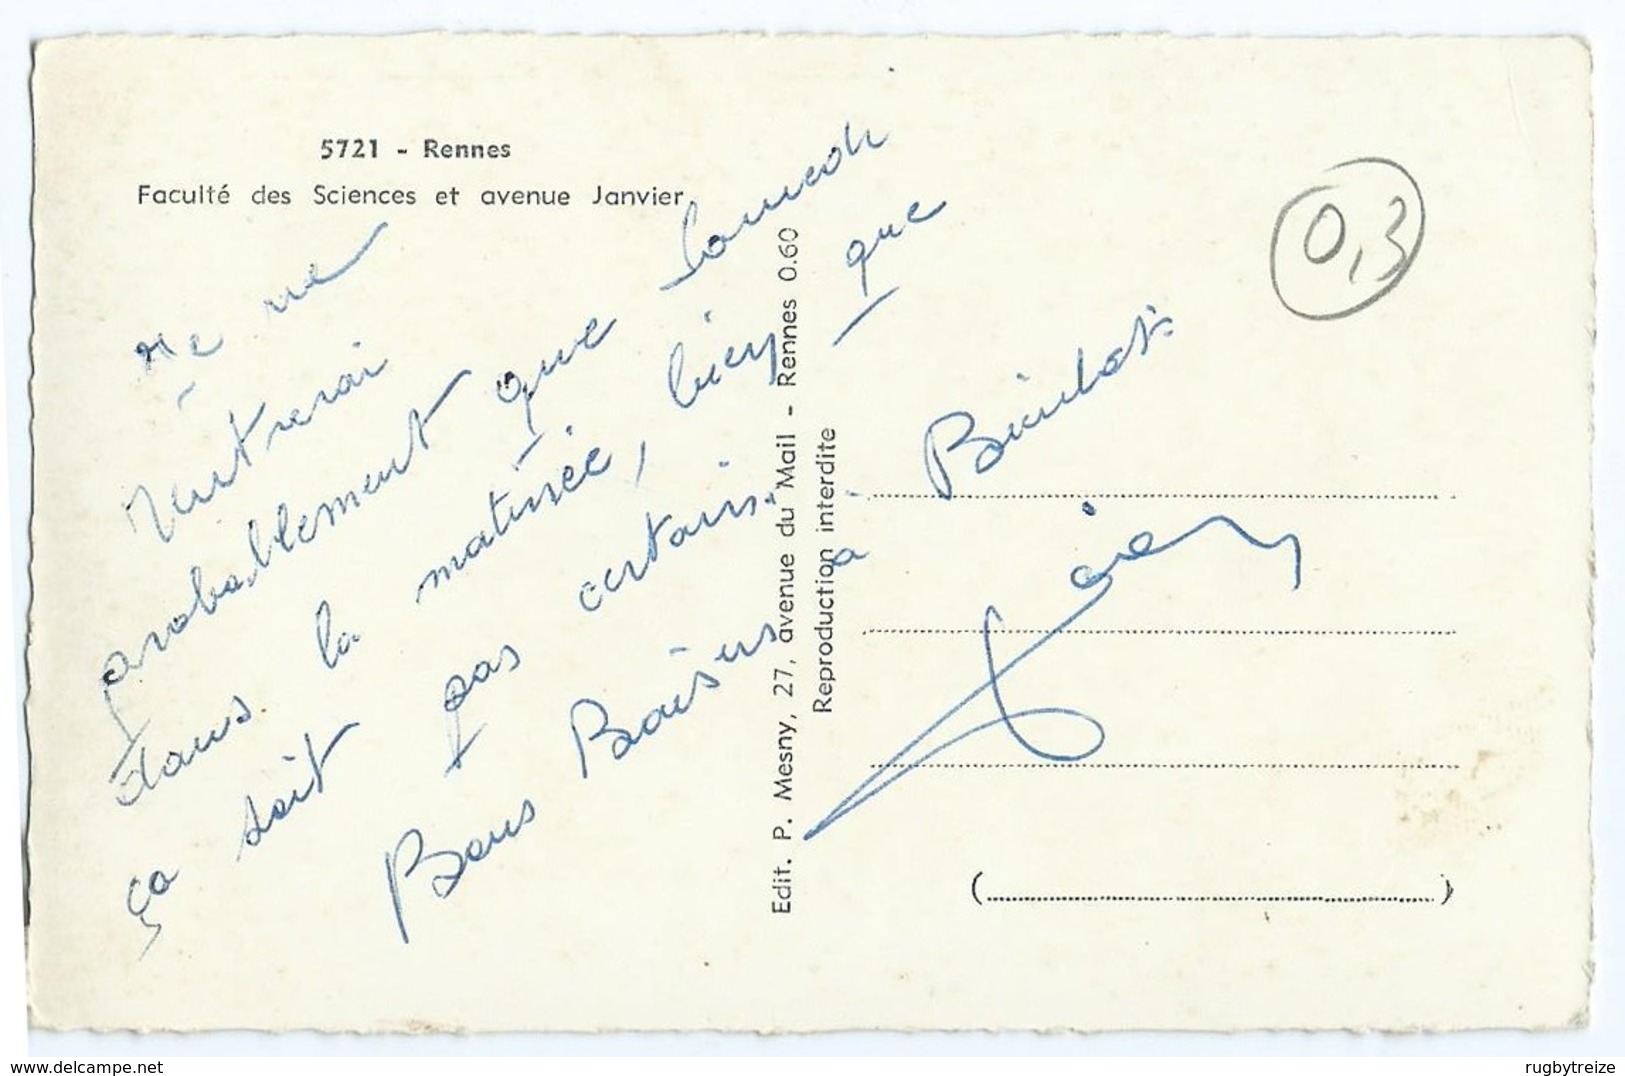 5721 - Rennes
Faculté des Sciences et avenue Janvier
Je ne
rentrerai
probablement que samedi
dans la matinée, bien que
ça soit pas certain.
Bons Baisers à
Edit. P. Mesny, 27, avenue du Mail - Rennes 0.60
Reproduction interdite
0,3
(
)
delcampe.net
rugbytreize